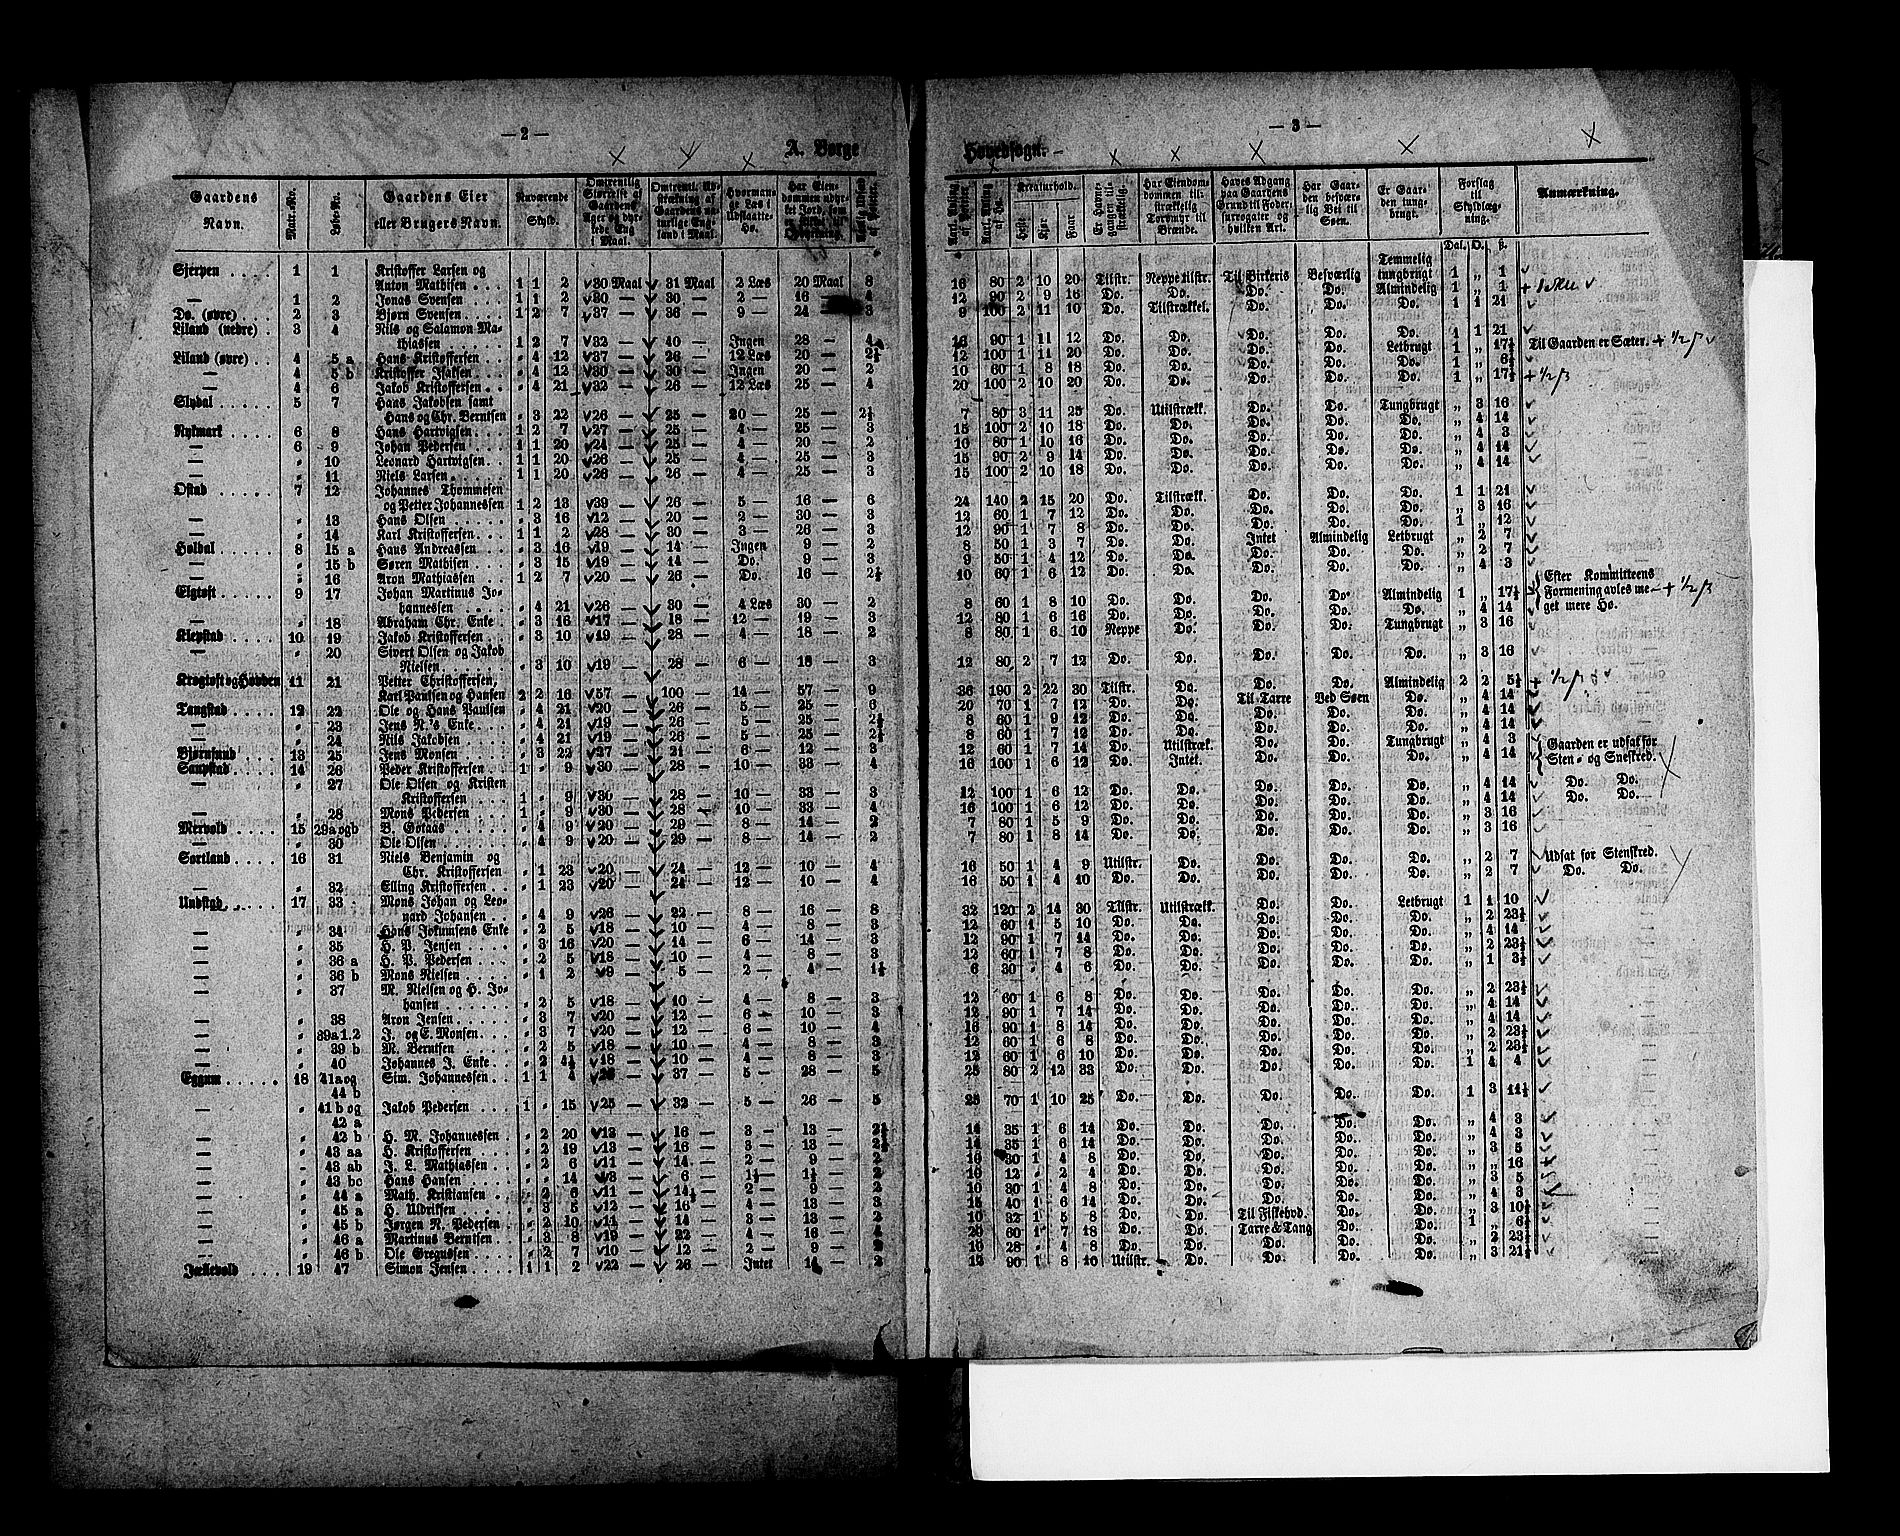 — 2 —
A. Borge
Gaardens Navn.
Matr.-No.
Løbe-Nr.
Gaardens Eier eller Brugers Navn.
Nuværende Skyld.
Omtrentlig Størrelse af Gaardens Ager og dyrkede Eng i Maal.
Omtrentl. Udstrækning af Gaardens naturlige Engeland i Maal.
Hvormange Læs i Udslaatte-Hø.
Har Eiendommen udyrket Jord, som er skikket til Opdyrkning.
Aarlig Udsæd af Poteter.
Sjerpen . . . . 1 1 Kristoffer Larsen og
Anton Mathisen . . . 1 1 2 30 Maal 31 Maal 2 Læs 20 Maal 8
— 1 2 Jonas Svensen . . . 1 1 2 30 — 30 — 2 — 16 — 4
Do. (øvre) . . 2 3 Bjørn Svensen . . . 1 2 7 37 — 36 — 9 — 24 — 3
Liland (nedre) . 3 4 Nils og Salamon Ma-
thiassen . . . . . 1 2 7 32 — 40 — Ingen 28 — 4
Liland (øvre) . . 4 5 a Hans Kristoffersen . . „ 4 12 37 — 26 — 12 Læs 20 — 2½
— 4 5 b Kristoffer Isaksen . . „ 4 12 30 — 30 — Ingen 20 — 2
— 4 6 Jakob Kristoffersen . . „ 4 21 32 — 26 — 12 Læs 25 — 4
Slydal . . . . . 5 7 Hans Jakobsen samt
Hans og Chr. Berntsen „ 3 22 26 — 25 — 20 — 25 — 2½
Nykmark . . . . 6 8 Hans Hartvigsen . . . 1 2 7 27 — 25 — 4 — 25 — 3
— 6 9 Johan Pedersen . . . 1 1 20 24 — 25 — 4 — 20 — 2
— „ 10 Leonard Hartvigsen . . 1 1 20 26 — 25 — 4 — 25 — 3
— „ 11 Niels Larsen . . . . 1 1 20 26 — 26 — 4 — 25 — 3
Ostad . . . . . 7 12 Johannes Thommesen
og Petter Johannessen 1 2 13 39 — 26 — 5 — 16 — 6
— „ 13 Hans Olsen . . . . . „ 3 16 12 — 20 — 2 — 30 — 3
— „ 14 Karl Kristoffersen . . 1 1 2 28 — 30 — 3 — 26 — 3
Holdal . . . . 8 15 a Hans Andreassen . . . „ 3 16 19 — 14 — Ingen 9 — 2
— „ 15 b Søren Mathisen . . . „ 3 15 19 — 14 — Do. 9 — 3
— „ 16 Aron Mathiassen . . 1 2 7 20 — 26 — Do. 16 — 2½
Elgtoft . . . . 9 17 Johan Martinus Jo-
hannessen . . . . „ 4 21 26 — 30 — 4 Læs 30 — 2
— „ 18 Abraham Chr. Enke . . „ 3 16 17 — 18 — 12 — 19 — 3
Klepstad . . . . 10 19 Jakob Kristoffersen . . „ 3 10 19 — 28 — 4 — 18 — 2
— „ 20 Sivert Olsen og Jakob
Nielsen . . . . . „ 3 10 19 — 28 — 6 — 18 — 3
Krogtoft og Hovden 11 21 Petter Christoffersen,
Karl Paulsen og Hansen 2 2 16 57 — 100 — 14 — 57 — 9
Tangstad . . . . 12 22 Ole og Hans Paulsen „ 4 21 20 — 26 — 5 — 25 — 6
— „ 23 Jens N.'s Enke . . . „ 4 21 19 — 26 — 5 — 25 — 2½
— „ 24 Nils Jakobsen . . . . „ 4 21 19 — 26 — 5 — 25 — 2½
Bjørnsund . . . 13 25 Jens Monsen . . . . „ 3 22 37 — 21 — 6 — 12 — 3
Sanpstad . . . . 14 26 Peder Kristoffersen . . 1 „ 9 30 — 28 — 10 — 33 — 4
— „ 27 Ole Olsen og Kristen
Kristoffersen . . . 1 „ 9 30 — 28 — 10 — 33 — 3
— „ 28 Mons Pedersen . . . 1 „ 9 30 — 28 — 10 — 33 — 4
Mervold . . . . 15 29 a og b B. Gotaas . . . . . „ 4 9 20 — 29 — 8 — 14 — 2
— „ 30 Ole Olsen . . . . . „ 4 9 20 — 29 — 8 — 14 — 2
Sørtland . . . . 16 31 Niels Benjamin og
Chr. Kristoffersen „ 1 23 20 — 24 — 12 — 10 — 4
— „ 32 Elling Kristoffersen . . „ 1 23 20 — 24 — 12 — 10 — 4
Undstad . . . . 17 33 Mons Johan og Leo-
nard Johansen . . „ 4 9 26 — 22 — 8 — 16 — 8
— „ 34 Hans Jokumsens Enke „ 2 5 18 — 10 — 4 — 8 — 3
— „ 35 H. P. Jensen . . . . „ 3 16 20 — 14 — 6 — 14 — 3
— „ 36 a H. P. Pedersen . . . „ 2 5 18 — 10 — 4 — 8 — 3
— „ 36 b Mons Nielsen . . . . „ 1 2 9 — 5 — 2 — 4 — 1½
— „ 37 M. Nielsen og H. Jo-
hansen . . . . . „ 2 5 18 — 10 — 4 — 8 — 3
— „ 38 Aron Jensen . . . . „ 3 7 20 — 12 — 6 — 10 — 3
— „ 39 a 1.2 J. og E. Monsen . . . „ 3 7 20 — 12 — 6 — 10 — 4
— „ 39 b M. Berntsen . . . . „ 2 5 18 — 10 — 4 — 8 — 3
— „ 40 Johannes J. Enke . . „ 2 4½ 18 — 10 — 4 — 8 — 3
Eggum . . . . . 18 41 a og Sim. Johannessen . . 1 1 4 26 — 37 — 5 — 28 — 5
44 b
— „ 41 b og Jakob Pedersen . . . 1 „ 15 25 — 32 — 5 — 26 — 5
42 a
— „ 42 b H. M. Johannessen . . „ 2 20 13 — 16 — 3 — 13 — 2½
— „ 43 aa H. Kristoffersen . . . „ 2 19 13 — 16 — 3 — 13 — 2½
— „ 43 ab J. L. Mathiassen . . „ 2 6 11 — 14 — 2 — 9 — 2
— „ 43 bc Hans Hansen . . . . „ „ 14 3 — 6 — 1½ — 1½ — 2
— „ 44 a Math. Kristiansen . . „ 2 6 11 — 14½ — 2 — 9 — 2
— „ 45 a H. Uldriksen . . . . „ 3 5 12 — 16 — 4 — 13 — 3
— „ 45 b Jørgen N. Pedersen . „ 2 10 11 — 14 — 3 — 13 — 2
— „ 46 a Martinus Berntsen . . „ 3 8 19 — 22 — 4 — 16 — 4
— „ 46 b Ole Gregussen . . . „ 2 7 10 — 12 — 2 — 9 — 2
Jællevold . . . 19 47 Simon Jensen . . . . 1 1 2 22 — 26 — Intet 14 — 2
— 3 —
Hovedsogn.
Aarl. Avling af Poteter.
Aarl. Avling af Hø.
Kreaturhold.
Heste
Kjør
Faar.
Er Havnegangen tilstrækkelig.
Har Eiendommen tilstrækkelig Torvmyr til Brænde.
Haves Adgang paa Gaardens Grund til Fodersurrogater og hvilken Art.
Har Gaarden besværlig Vei til Søen.
Er Gaarden tungbrugt.
Forslag til Skyldlægning.
Anmærkning.
Dal. O. ß.
Temmelig
16 80 2 10 20 Tilstr. Neppe tilstr. Til Birkeris Besværlig tungbrugt 1 „ 1
12 90 2 9 16 Do. Do. Do. Do. Almindelig 1 „ 1
9 100 2 11 10 Do. Tilstrækkel. Do. Do. Do. 1 1 21
16 90 1 11 12 Do. Do. Do. Do. Do. 1 1 21
12 100 1 11 20 Do. Do. Do. Do. Letbrugt 1 „ 17½ Til Gaarden er Sæter. + 1/2 ß
10 60 1 8 18 Do. Do. Do. Do. Do. 1 „ 6½
20 100 2 10 20 Do. Do. Do. Do. Do. 1 „ 17½ + 1/2 ß
7 80 3 11 25 Do. Utilstrækk. Do. Do. Tungbrugt „ 3 16
15 100 2 10 18 Do. Do. Do. Do. Do. „ 4 14
10 80 1 10 16 Do. Do. Do. Do. Do. „ 4 3
15 90 2 9 14 Do. Do. Do. Do. Do. „ 4 14
15 100 2 10 18 Do. Do. Do. Do. Do. „ 4 14
24 140 2 15 20 Do. Tilstrækk. Do. Do. Do. 1 1 21
12 60 1 7 12 Do. Do. Do. Do. Do. „ 3 16
12 90 1 7 8 Do. Do. Do. Do. Do. 1 „ 12
8 50 1 3 7 Do. Do. Intet Almindelig Letbrugt „ 2 7
9 50 1 4 12 Do. Do. Do. Do. Do. „ 2 7
10 60 1 6 12 Do. Do. Do. Do. Do. „ 4 3
8 60 1 8 10 Do. Do. Do. Do. Almindelig 1 „ 17½ Efter Kommitteens Formening avles meget mere Hø. + 1/2 ß
12 80 1 6 16 Do. Do. Do. Do. Do. „ 4 14
8 80 1 6 10 Neppe Do. Do. Do. Tungbrugt „ 3 16
12 80 2 7 12 Do. Do. Do. Do. Do. „ 3 16
36 190 2 22 30 Tilstr. Do. Do. Do. Almindelig 2 2 5½ + 1/2 ß
20 70 1 7 12 Do. Do. Til Tarre Ved Søen Do. „ 4 14
8 60 1 9 12 Do. Do. Do. Do. Do. „ 4 14
8 60 1 7 12 Do. Do. Do. Do. Do. „ 4 14
12 60 1 7 14 Do. Utilstræk. Do. Do. Tungbrugt „ 4 3 Gaarden er udsat for
16 100 1 6 12 Do. Intet. Do. Do. Do. „ 4 14 Sten- og Sneskred.
12 100 1 6 12 Do. Do. Do. Do. Do. „ 4 14 Do. Do.
16 100 1 6 12 Do. Do. Do. Do. Do. „ 4 14 Do. Do.
7 80 1 5 9 Do. Do. Do. Do. Do. „ 3 16
7 80 1 8 14 Do. Do. Do. Do. Do. „ 3 16
16 50 1 4 9 Utilstr. Do. Do. Do. Do. „ 2 7 Udsat for Stenskred.
16 50 1 4 10 Do. Do. Do. Do. Do. „ 2 7 Do. Do.
32 120 2 14 30 Tilstr. Utilstrækk. Do. Do. Letbrugt 1 1 10
12 60 1 5 10 Do. Do. Do. Do. Do. „ 2 23½
12 90 1 7 14 Do. Do. Do. Do. Do. „ 4 14
12 60 1 7 8 Do. Do. Do. Do. Do. „ 2 23½
6 30 „ 4 6 Do. Do. Do. Do. Do. „ 1 3½
12 60 1 6 8 Do. Do. Do. Do. Do. „ 2 23½
12 90 1 7 14 Do. Do. Do. Do. Do. „ 4 14
16 90 1 8 14 Do. Do. Do. Do. Do. „ 4 14
12 60 1 6 8 Do. Do. Do. Do. Do. „ 2 23½
12 60 1 6 10 Do. Do. Do. Do. Do. „ 2 23½
25 80 2 12 33 Do. Do. Do. Do. Do. 1 4 4
25 70 1 10 25 Do. Do. Do. Do. Do. 1 3 11½
14 35 1 6 14 Do. Do. Do. Do. Do. „ 4 3
14 35 1 6 14 Do. Do. Do. Do. Do. „ 4 3
10 30 1 4 8 Do. Do. Do. Do. Do. „ 3 5
10 12 „ 2 4 Do. Do. Do. Do. Do. „ „ 16
10 30 1 4 8 Do. Do. Do. Do. Do. „ 3 5
15 40 1 6 14 Do. Do. Do. Do. Do. „ 4 3
10 32 1 5 8 Do. Do. Til Fiskehvd. Do. Do. „ 3 10½
20 60 1 7 18 Do. Do. Tarre & Tang Do. Do. 1 „ 6½
10 28 „ 4 8 Do. Do. Do. Do. Do. „ 2 23½
12 90 1 8 10 Utilstr. Do. Do. Do. Do. „ 3 21½